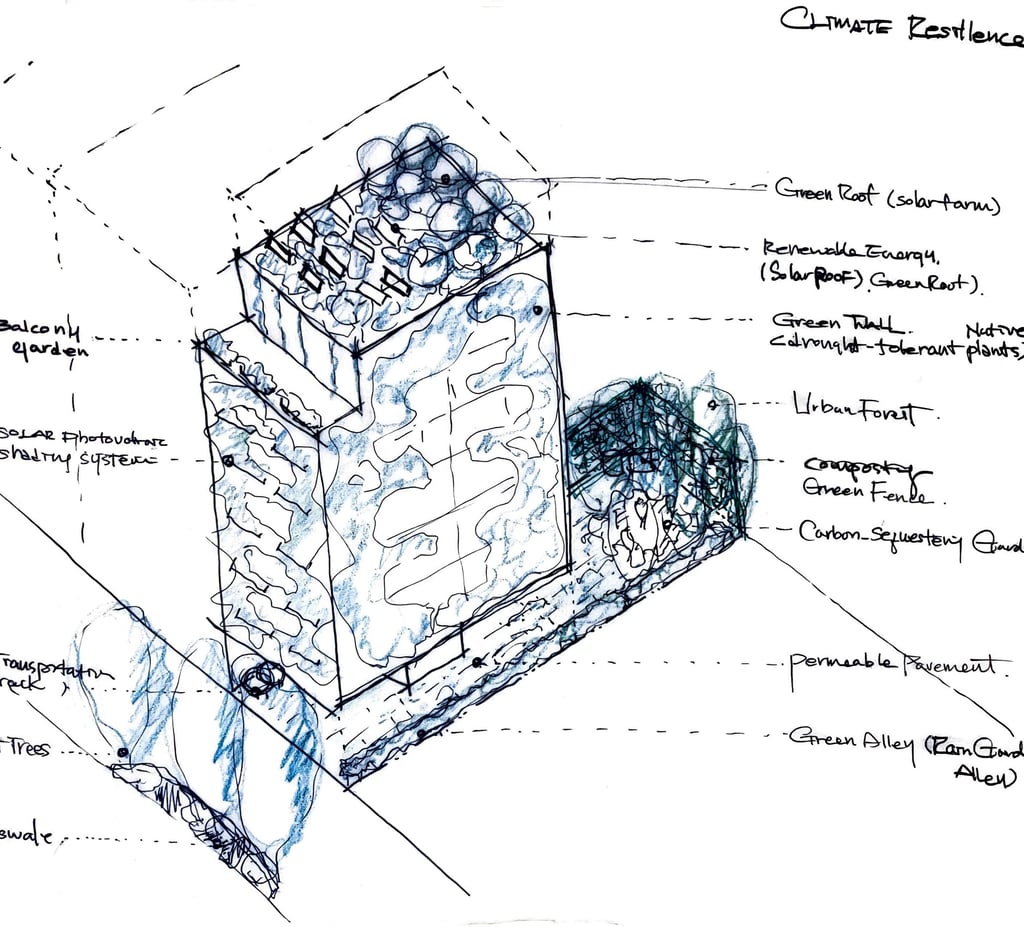 CLIMATE Resilience
Green Roof (solar farm)
Renewable Energy.
(Solar Roof). Green Roof).
Green Wall. Native
(drought-tolerant plants)
Urban Forest.
Green Fence.
Carbon-Sequestery Gard
permeable Pavement.
Green Alley (Rain Gard
Alley)
Balcony
garden
SOLAR Photovoltaic
shading system
Transportation
rack
Trees
swale